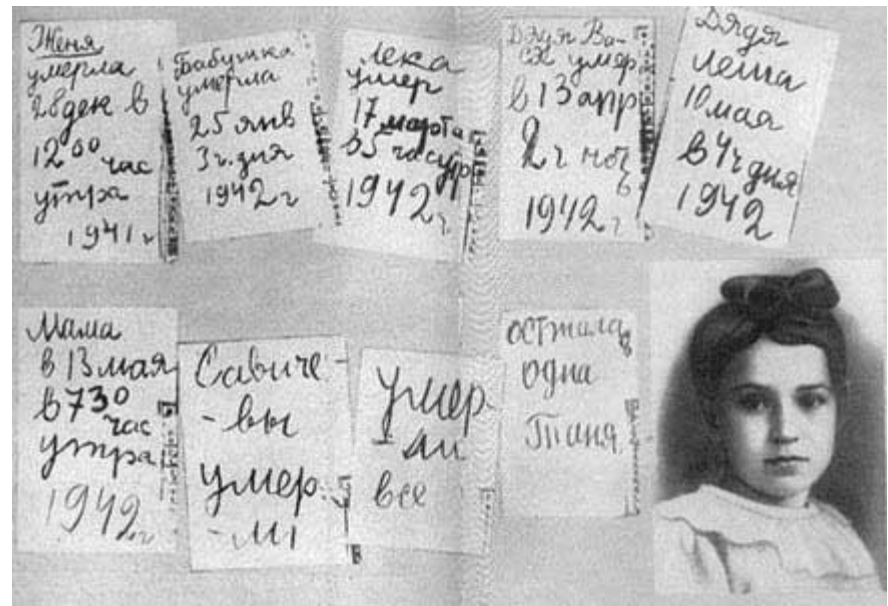 Женя
умерла
28 дек в
12 00 час
утра
1941 г
Бабушка
умерла
25 янв
3 ч. дня
1942 г
Лека
умер
17 марта
в 5 час утр
1942 г
Дядя Ва-
ся умер
в 13 апр
2 ч ноч ь
1942 г
Дядя
Леша
10 мая
в 4 ч дня
1942
Мама
в 13 мая
в 7 30
час
утра
1942 г
Савиче-
-вы
умер.
-ли
Умер
-ли
все
осталась
одна
Таня